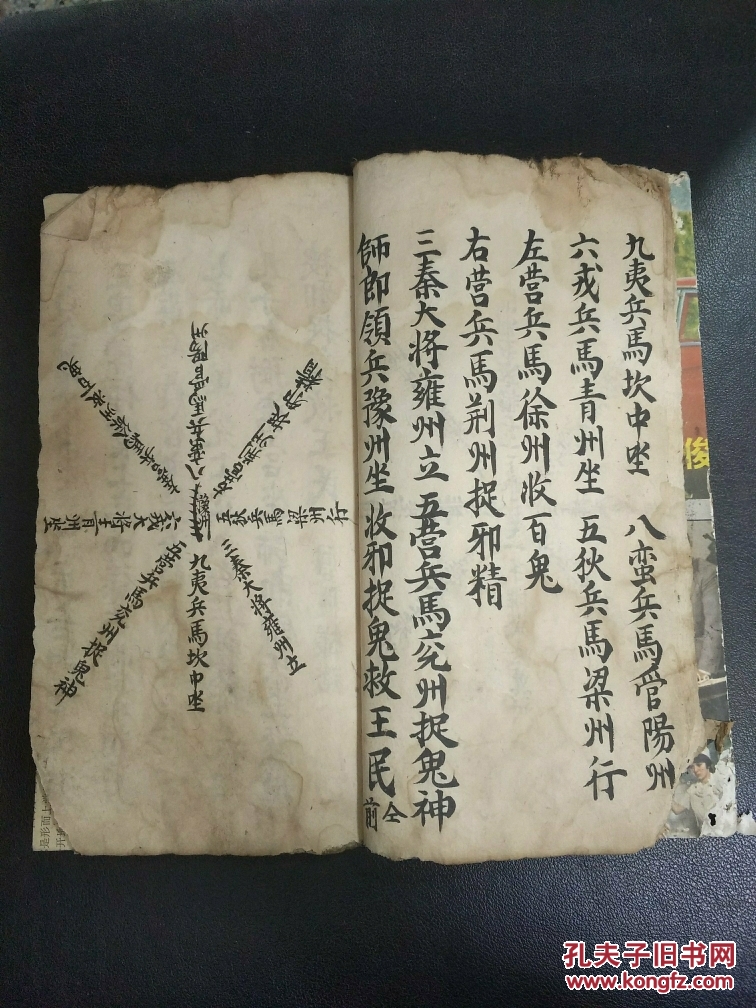 九夷兵馬坎中坐 八蛮兵馬管陽州
六戎兵馬青州坐 五狄兵馬梁州行
左营兵馬徐州收百鬼
右营兵馬荆州捉邪精
三秦大将雍州立 五营兵馬兖州捉鬼神
師郎領兵豫州坐 收邪捉鬼救王民
仝前
八蛮兵馬管陽州
六戎大将青州坐
五狄兵馬梁州行
五营兵馬兖州捉鬼神
九夷兵馬坎中坐
三秦大将雍州立
俊
是形而上
开
孔夫子旧书网
www.kongfz.com